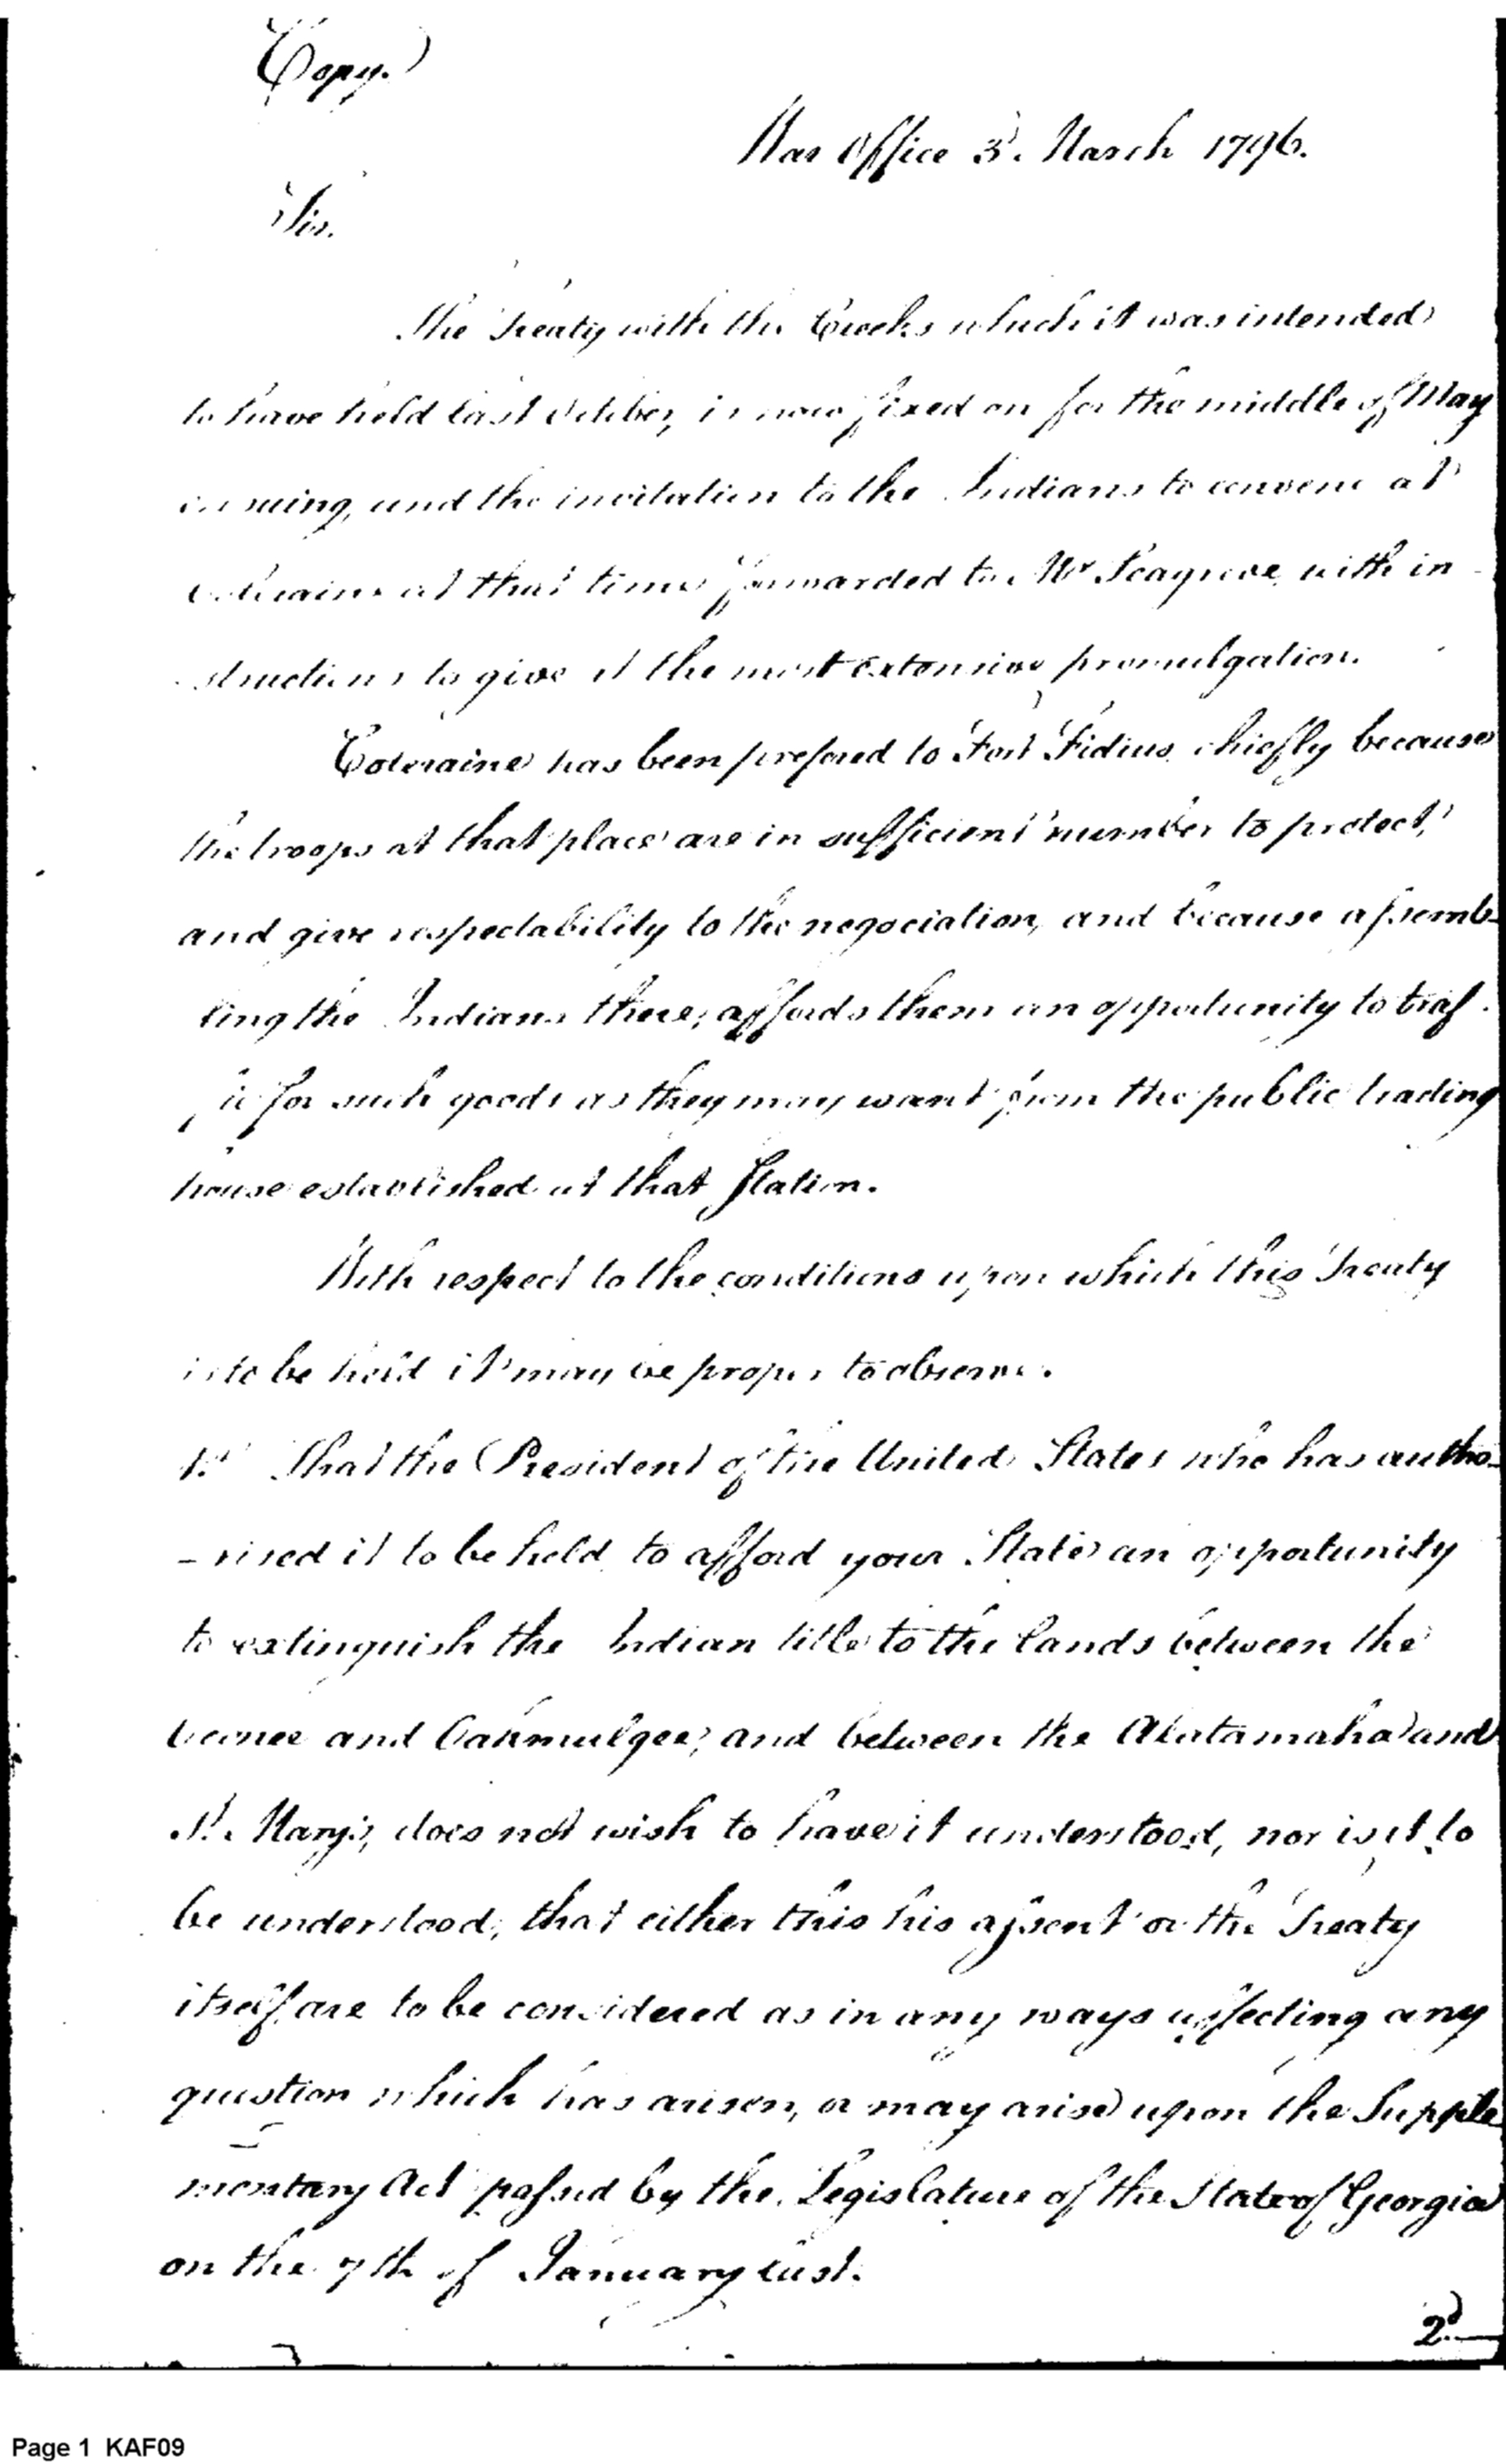 Copy.)
War Office 3d. March 1796.
Sir.
The Treaty with the Creeks which it was intended
to have held last October, is now fixed on for the middle of May
ensuing, and the invitation to the Indians to convene at
Colerain at that time forwarded to Mr Seagrove with in
structions to give it the most extensive promulgation.
Coleraine has been prefered to Fort Fidius chiefly because
the troops at that place are in sufficient number to protect,
and give respectability to the negociation, and because assemb-
ling the Indians there, affords them an opportunity to traf-
fic for such goods as they may want from the public trading
house established at that Station.
With respect to the conditions upon which this Treaty
is to be held it may be proper to observe.
1st That the President of the United States who has autho-
-rised it to be held to afford your State an opportunity
to extinguish the Indian title to the lands between the
Oconee and Oakmulgee, and between the Alatamaha and
St. Mary's, does not wish to have it understood, nor is it to
be understood, that either this his assent or the Treaty
itself are to be considered as in any ways affecting any
question which has arisen, or may arise upon the Supple
mentary Act passed by the Legislature of the State of Georgia
on the 7th of January last.
2d
Page 1 KAF09